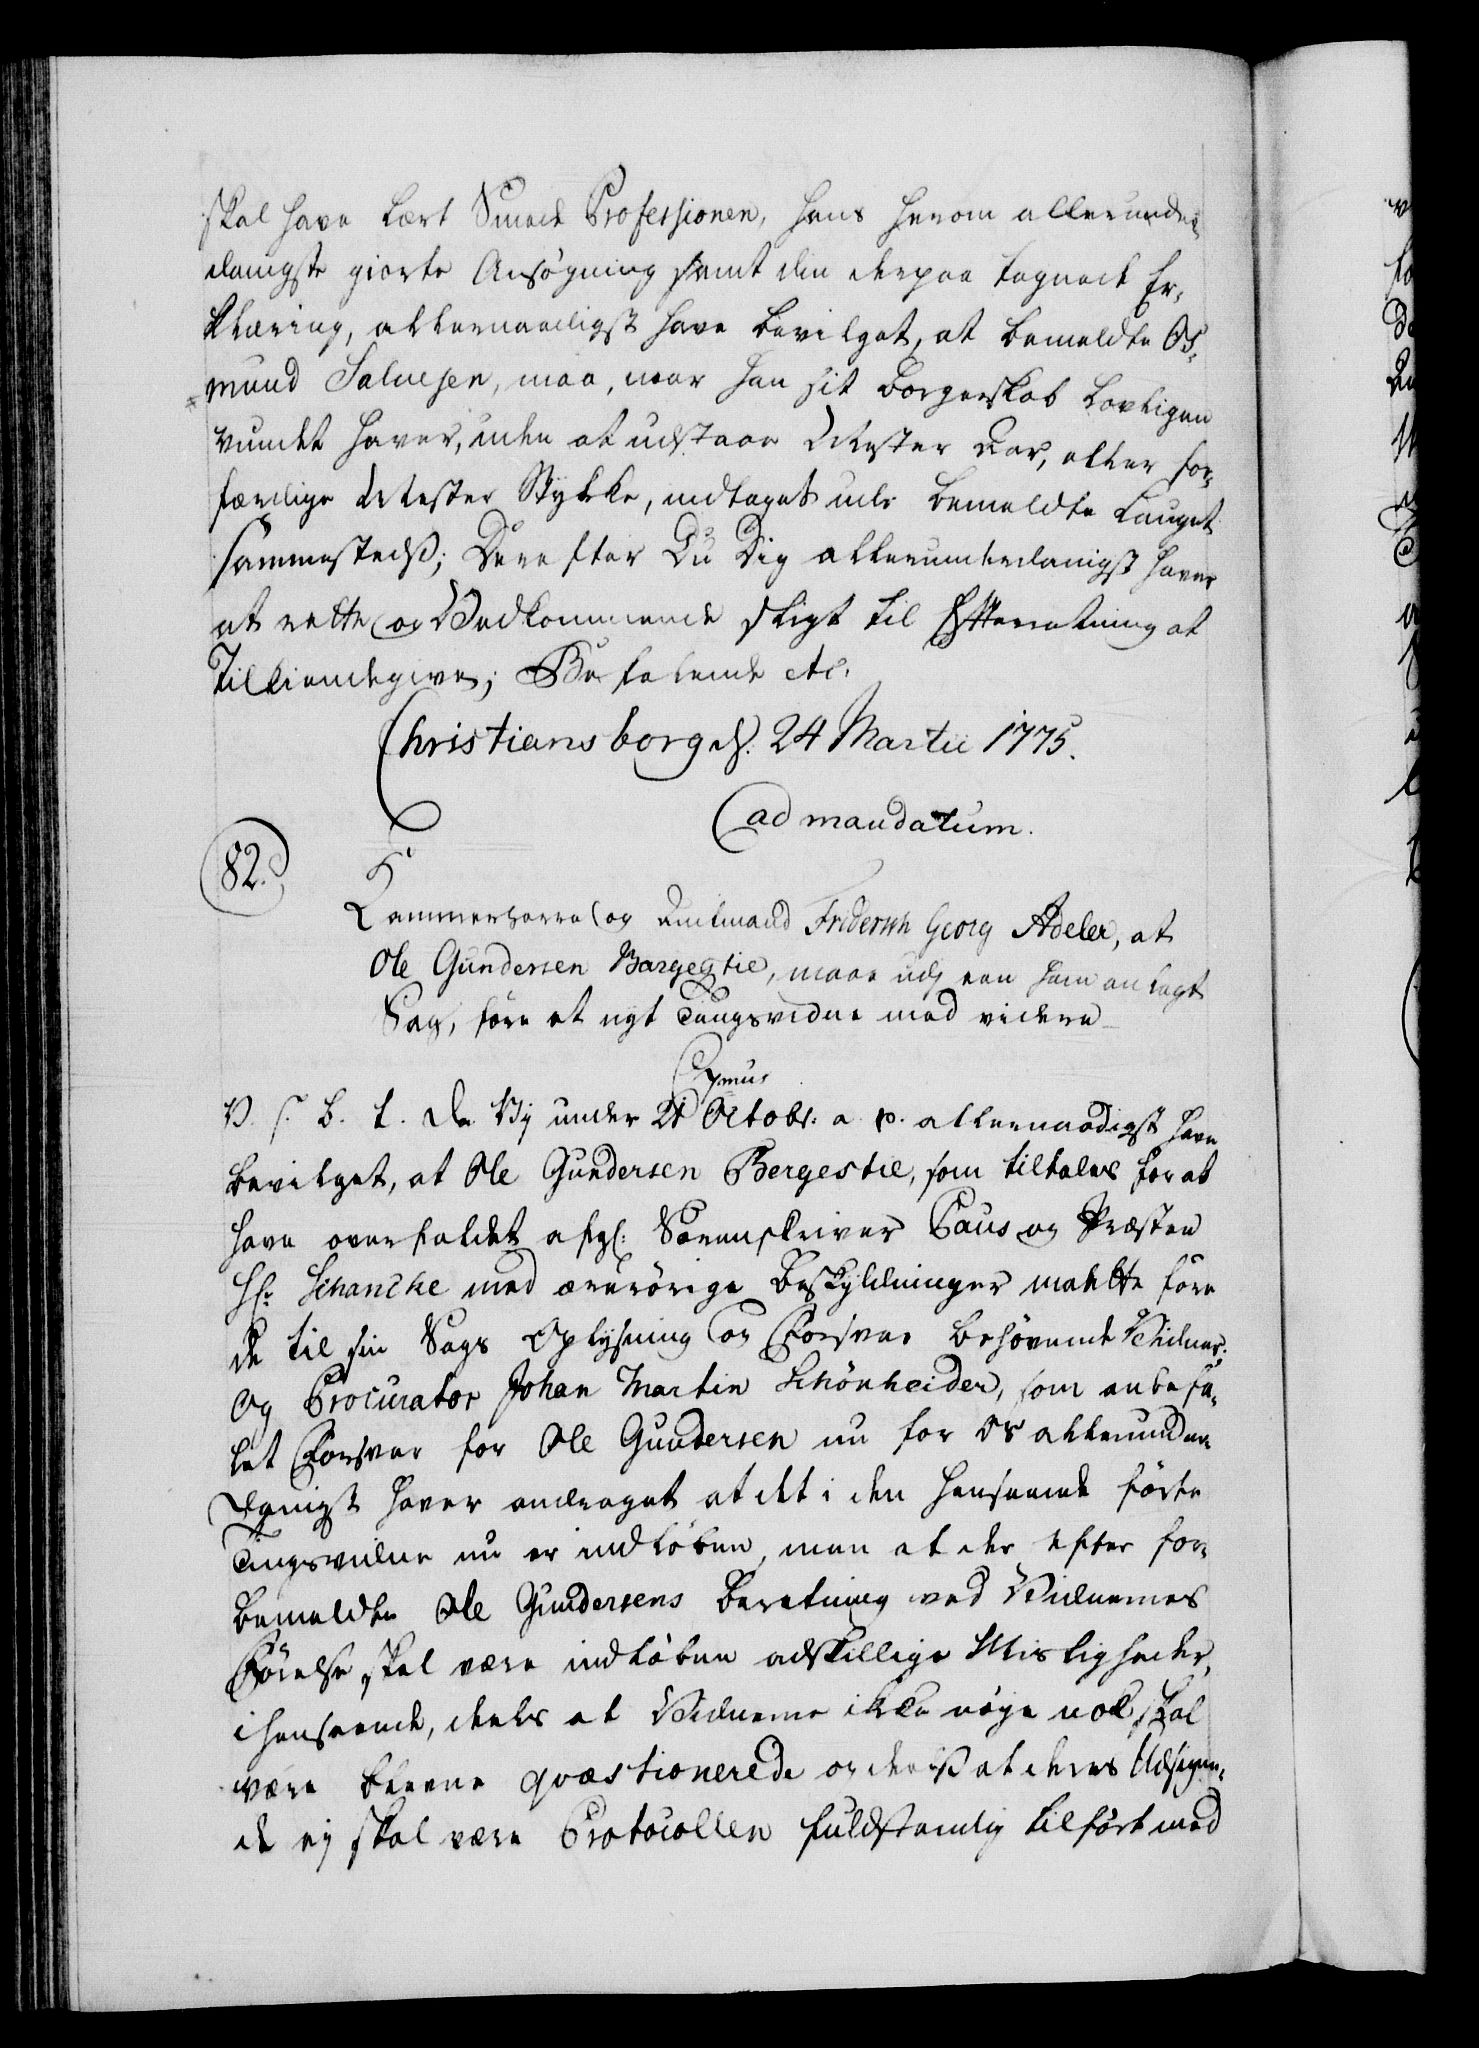 skal have lært Smede Professionen, hans herom allerunder-
danigste giorte Ansøgning samt din derpaa tegnede Er-
klæring, allernaadigst have bevilget, at bemeldte Os-
mund Salvesen, maa, naar han sit Borgerskab lovligen
vundet haver, uden at udstaae Mester Aar, eller for-
færdige Mester Stykke, indtages udi bemeldte Lauget
sammestedß; Derefter Du Dig allerunderdanigst haver
at rette og Vedkommende sligt til Efterretning at
Tilkiendegive; Befalende etc.
Christiansborg d. 24 Martii 1775.
ad mandatum.
82.
Kammerherre og Amtmand Friderich Georg Adeler, at
Ole Gundersen Bergestie, maae udj een ham anlagt
Sag, føre et nyt Tingsvidne med videre
7mus
V. S. B. t. Da Vij under 21 Octobr. a. p. allernaadigst have
bevilget, at Ole Gundersen Bergestie, som tiltales for at
have overfaldet afgl. Sorenskriver Paus og Præsten
Hr. Schancke med ærerørige Beskyldninger maatte føre
de til sin Sags Oplysning og Forsvar behøvende Vidner;
og Procurator Johan Martin Schönheider, som anbefa-
let Forsvar for Ole Gundersen nu for Os allerunder-
danigst haver andraget at det i den Henseende førte
Tingsvidne nu er indløben, men at der efter for-
bemeldte Ole Gundersens Beretning ved Vidnernes
Førelse skal være indløben adskillige Misligheder,
i henseende, deels at Vidnerne ikke nøye nok skal
være blevne qvæstionerede og deelß at deres Udsigen-
de ej skal være Protocollen fuldstændig tilført med